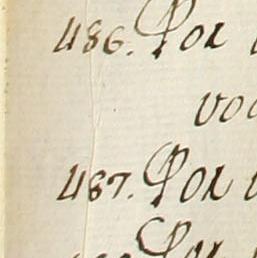 486. Por
voc
487. Por